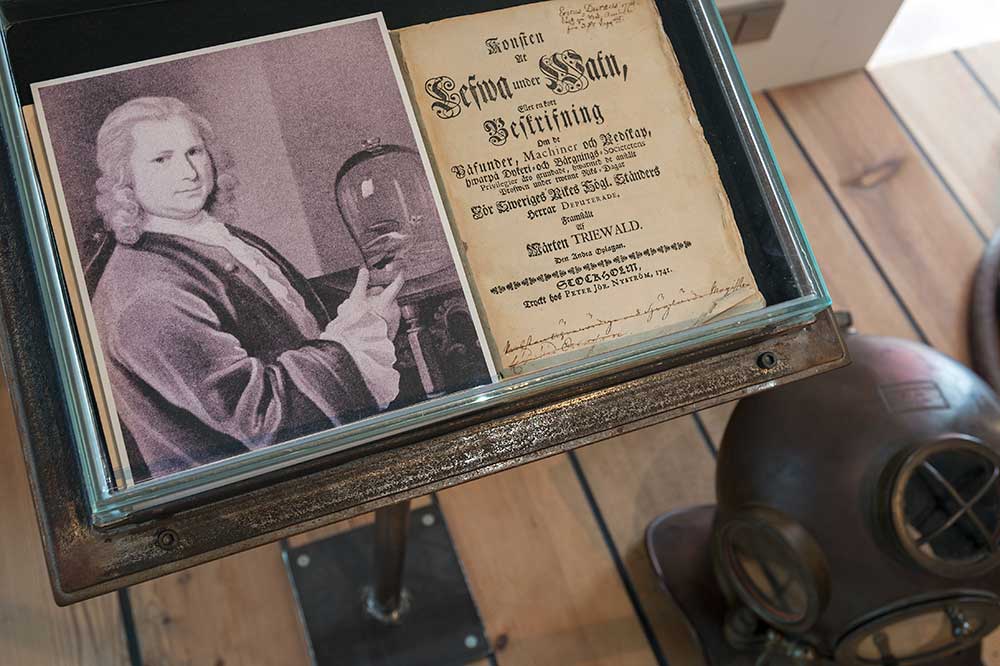 Konsten
At
Lefwa under Watn,
Eller en kort
Beskrifning
Om de
Påfunder, Machiner och Redskap,
hwarpå Dykeri- och Bärgnings-Societetens
Privilegier äro grundade, hwarmed de anstält
Profwen under twenne Riks-Dagar
För Sweriges Rikes Högl. Ständers
Herrar DEPUTERADE,
Framstält
Af
Mårten TRIEWALD.
Den Andra Oplagan.
STOCKHOLM,
Tryckt hos PETER JÖR. NYSTRÖM, 1741.